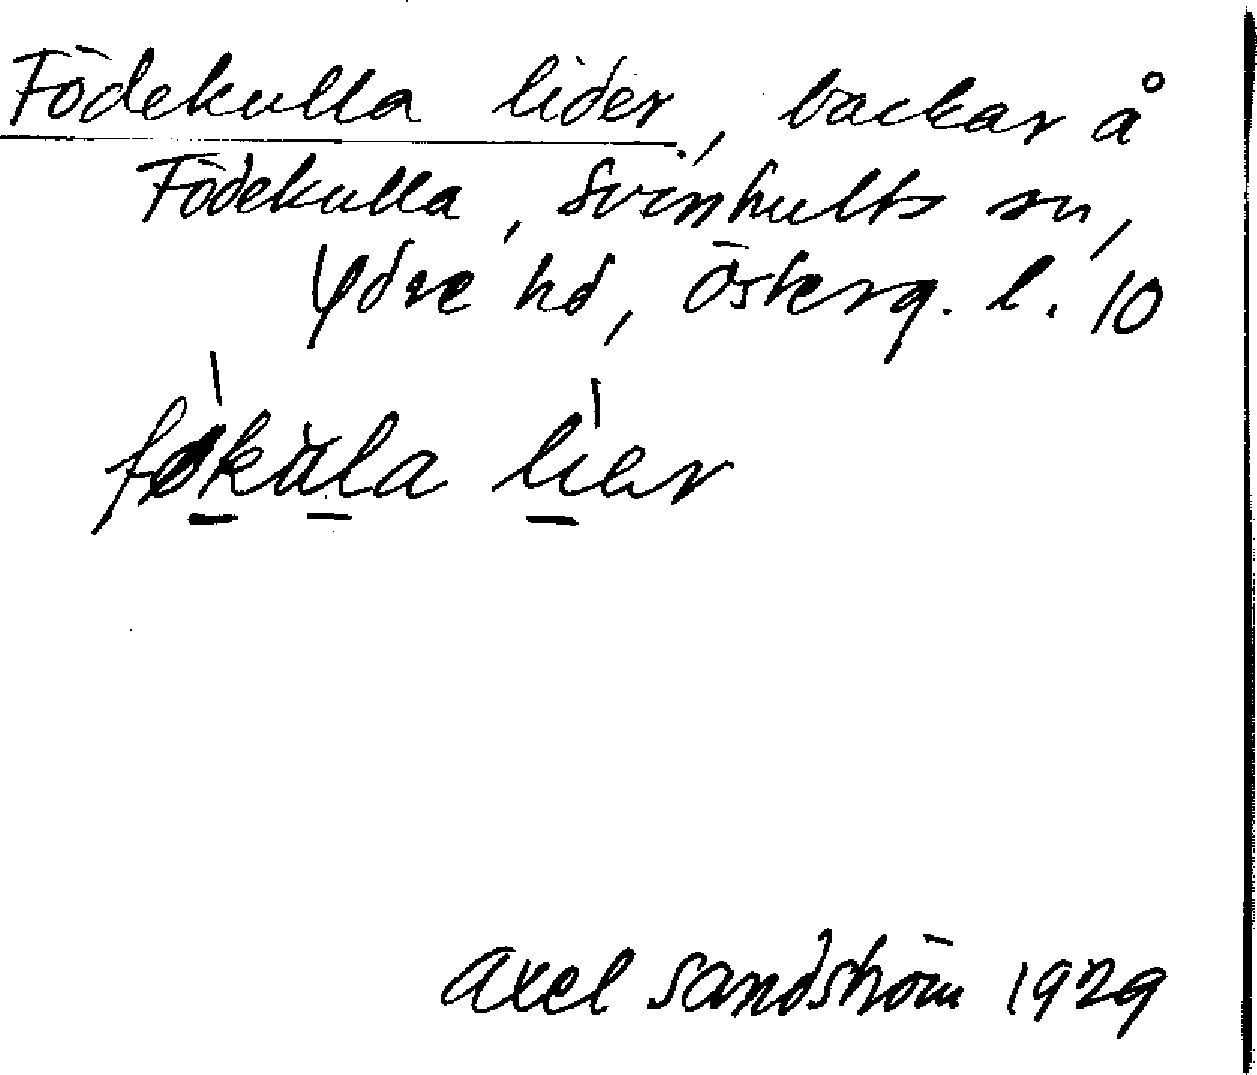 Födekulla lider, backar å
Födekulla, Svinhults sn,
Ydre hd, Österg. l. 10
føkula lier
Axel Sandström 1929